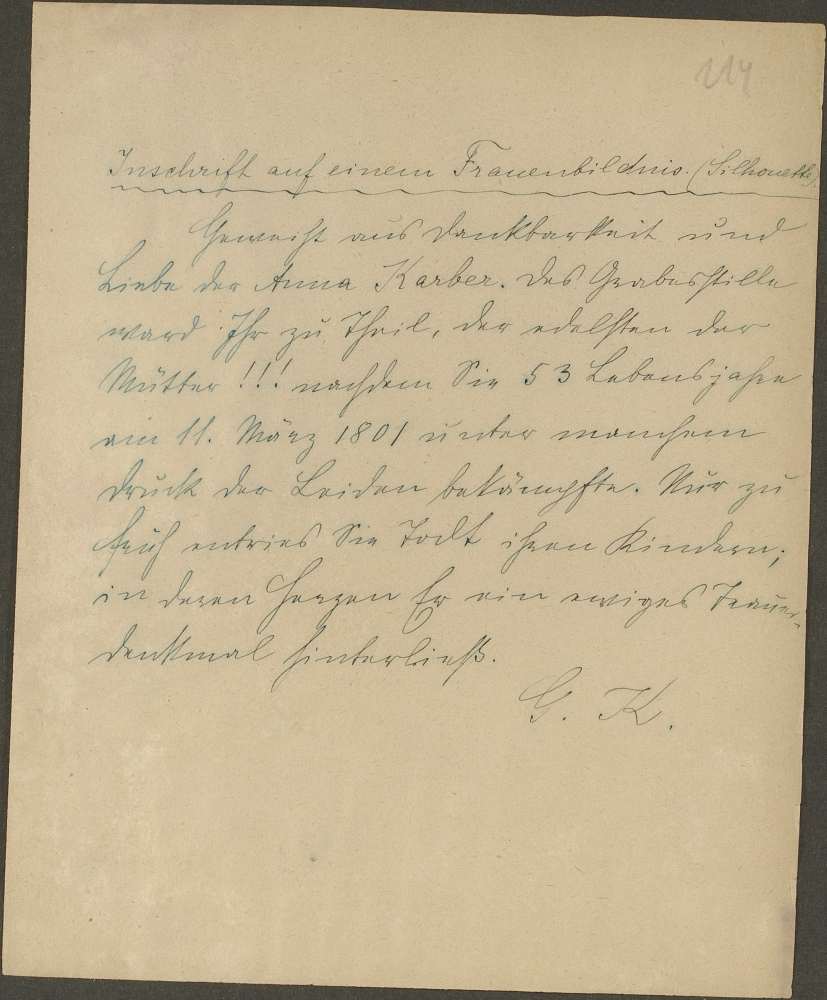 114
Inschrift auf einem Frauenbildnis. (Silhouette).
Geweiht aus Dankbarkeit und
Liebe der Anna Karber. Des Grabesstille
ward Ihr zu Theil, der edelsten der
Mütter!!! nachdem Sie 53 Lebensjahre
am 11. März 1801 unter manchem
Druck der Leiden bekämpfte. Nur zu
früh entries Sie Todt ihren Kindern;
in deren Herzen Er ein ewiges Trauer-
denkmal hinterließ.
G. K.